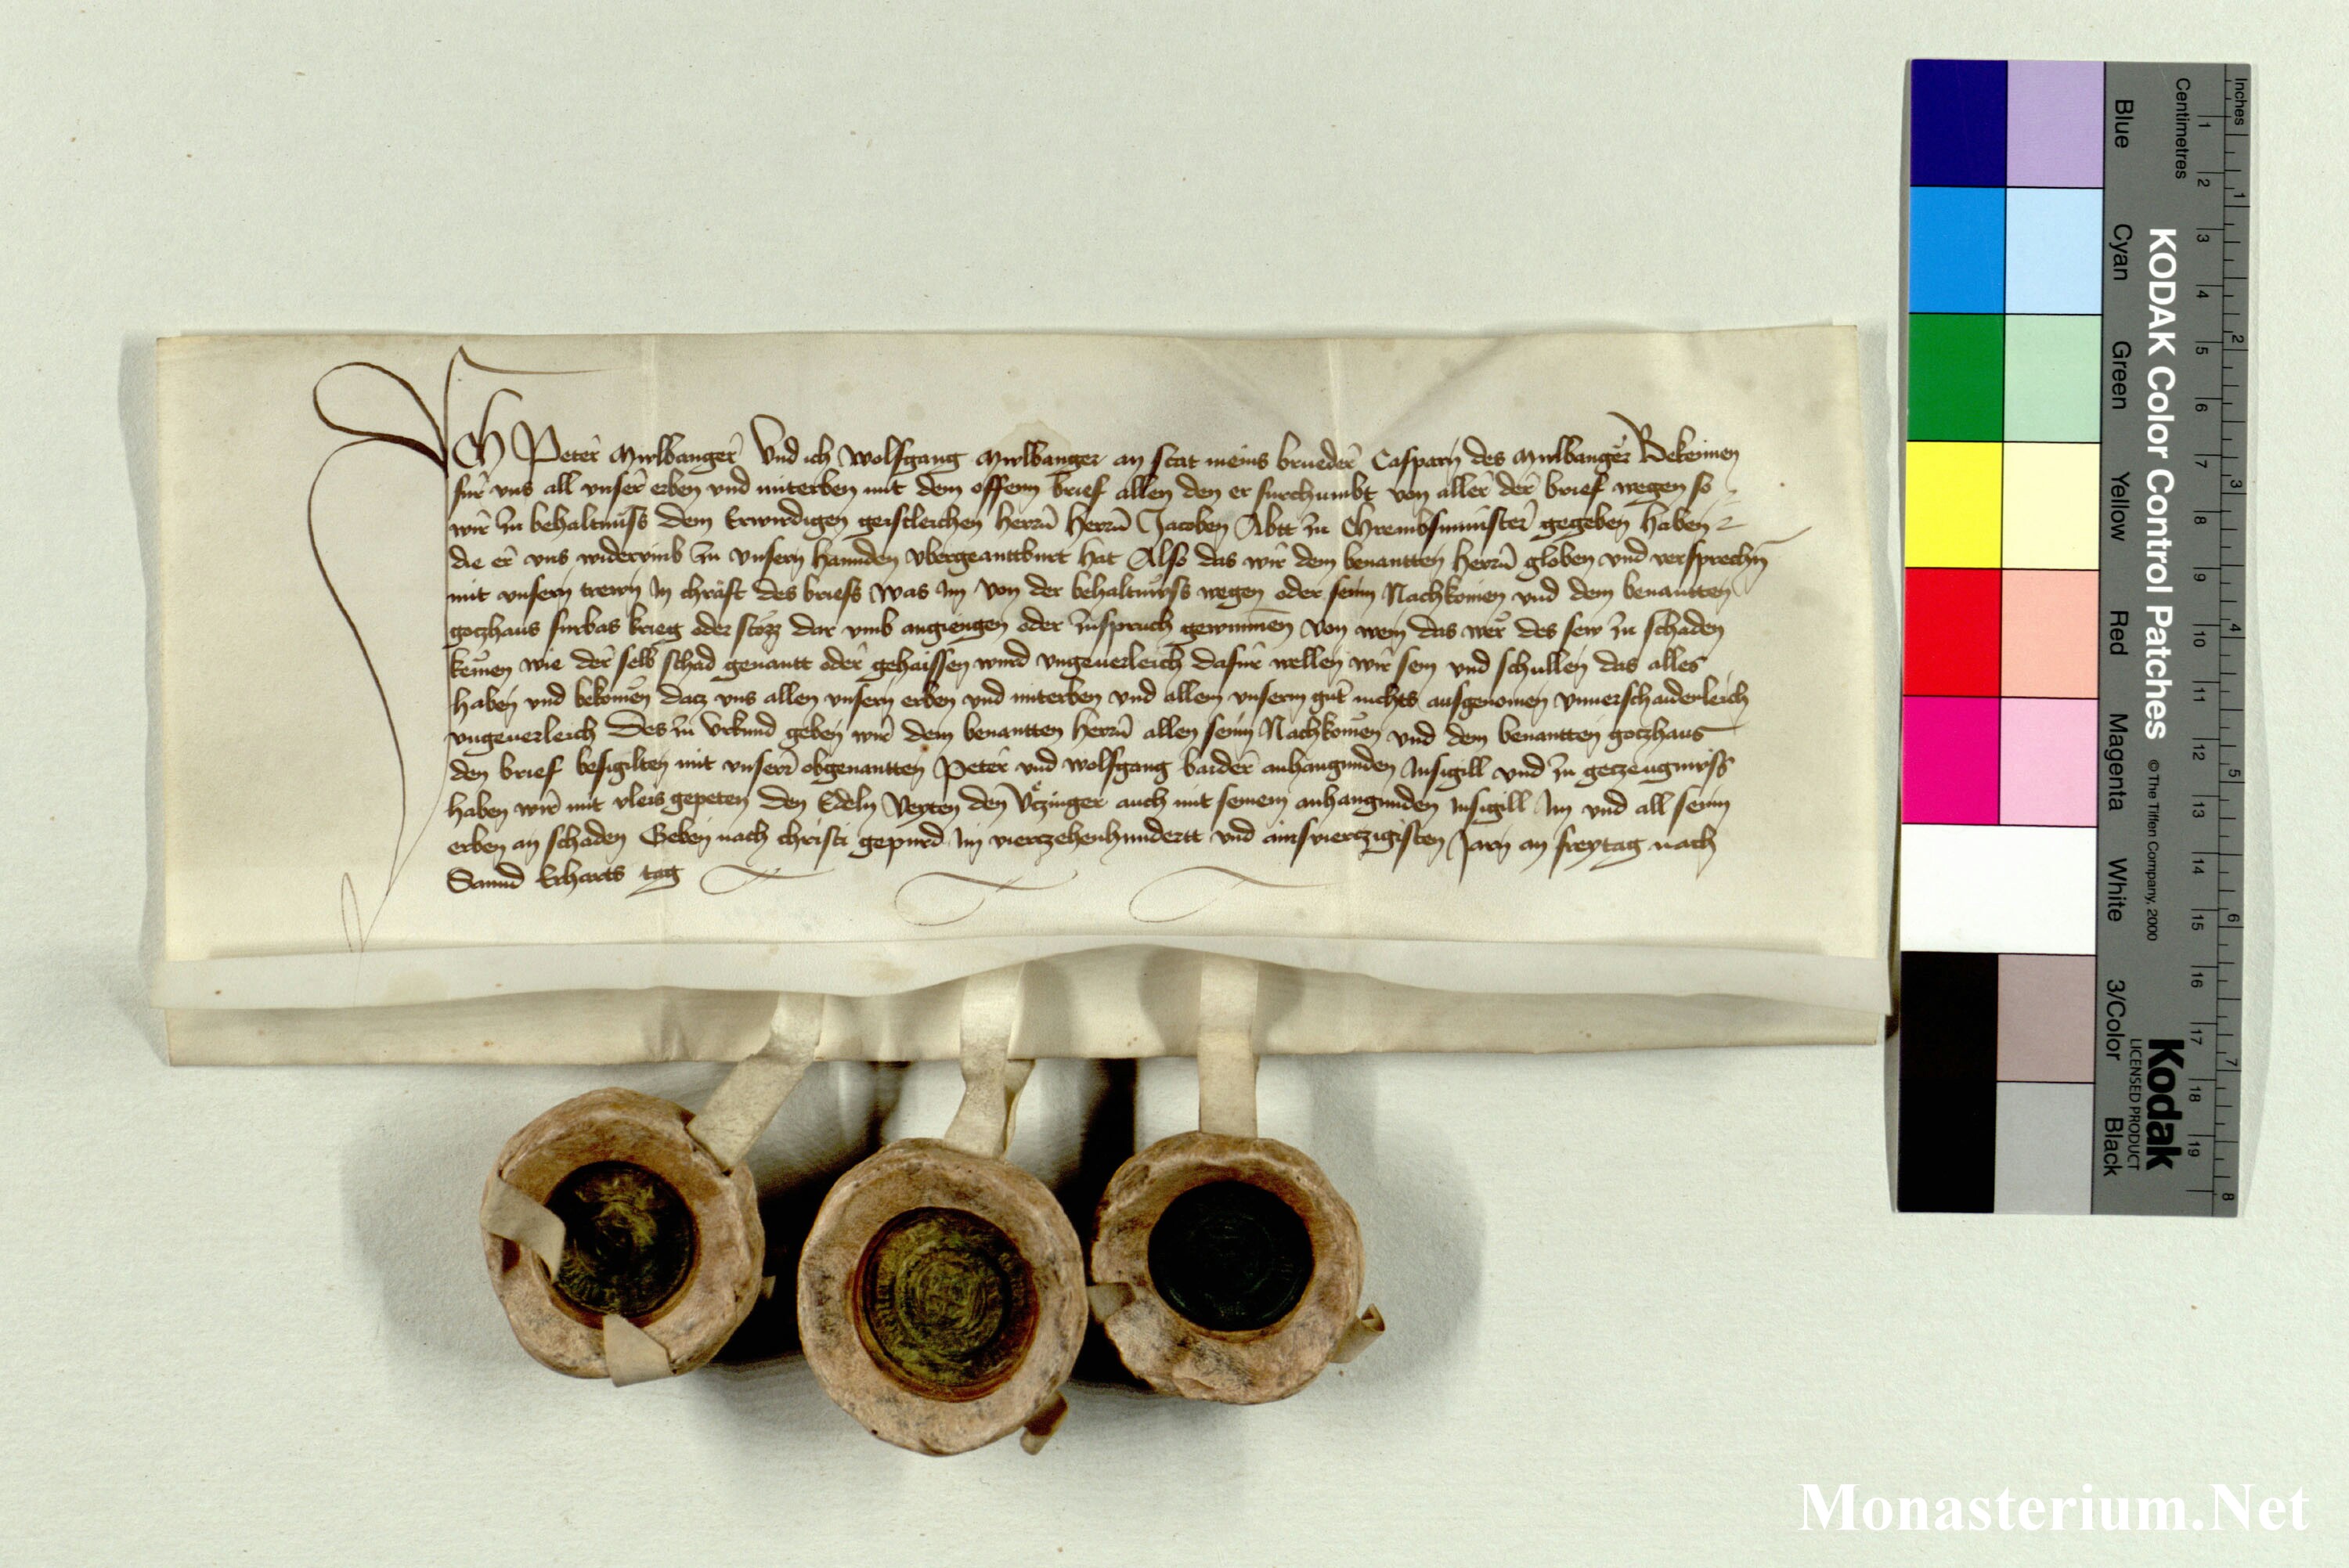 Ich Peter Mulbanger Vnd ich Wolfgang Mulbanger an stat meins brueder Casparn des Mulbanger Bekennen
fur vns all vnser erben vnd miterben mit dem offenn brief allen den er furchumbt von aller der brief wegen so
wir zu behaltnuss dem Erwirdigen geistleichen herrn herrn Jacoben Abtt zu Chrembsmunster gegeben haben
die er vns widerumb zu vnsern hannden vbergeanttburt hat Also das wir dem benantten herrn globen vnd versprechn
mit vnsern trewn In chraft des briefs Was im von der behaltnuss wegen oder seinn Nachkomen vnd dem benantten
gotzhaus furbas krieg oder stozz dar vmb angiengen oder zuspruch gewunnen von wem das wer des sew zu schaden
kemen wie der selb schad genantt oder gehaissen wurd vngeuerleich dafur wellen wir sein vnd schullen das alles
haben vnd bekomen datz vns allen vnsern erben vnd miterben vnd allem vnserm gut nichts ausgenomen vnuerschaidenleich
vngeuerleich Des zu Vrkund geben wir dem benantten herrn allen seinn Nachkomen vnd dem benantten gotzhaus
den brief besigilten mit vnserr obgenantten Peter vnd Wolfgang baider anhangunden Insigill vnd zu getzeugnuss
haben wir mit vleis gepeten den Edeln Veyten den Vtzinger auch mit seinem anhangunden Insigill Im vnd all seinn
erben an schaden Geben nach christi gepurd Im viertzehenhundertt vnd ainsviertzigisten Jarn an freytag nach
Sannd Erharts tag
Inches
Centimetres
KODAK Color Control Patches
© The Tiffen Company, 2000
Kodak
LICENSED PRODUCT
Blue Cyan Green Yellow Red Magenta White 3/Color Black
1 2 3 4 5 6 7 8 9 10 11 12 13 14 15 16 17 18 19
1 2 3 4 5 6 7 8
Monasterium.Net